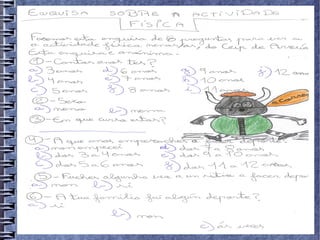 ENQUISA SOBRE A ACTIVIDADE
FÍSICA
Facemos esta enquisa de 8 preguntas para ver a
a actividade física nenos/as, do Ceip de
Esta enquisa é anónima.
①-Cantos anos tes?
a) 3 anos d) 6 anos g) 9 anos j) 12 anos
b) 4 anos e) 7 anos h) 10 anos
c) 5 anos f) 8 anos i) 11 anos
②-Sexo
a) neno b) nena
③-En que curso estás?
④-A que anos empezaches a deporte?
a) non empecei d) dos 7 a 8 anos
b) dos 3 a 4 anos e) dos 9 a 10 anos
c) dos 5 a 6 anos f) dos 11 a 12 anos
⑤-Fuches algunha vez a un sitio a facer depor
a) non b) si
⑥-A túa familia fai algún deporte?
a) si
b) non
c) ás veces